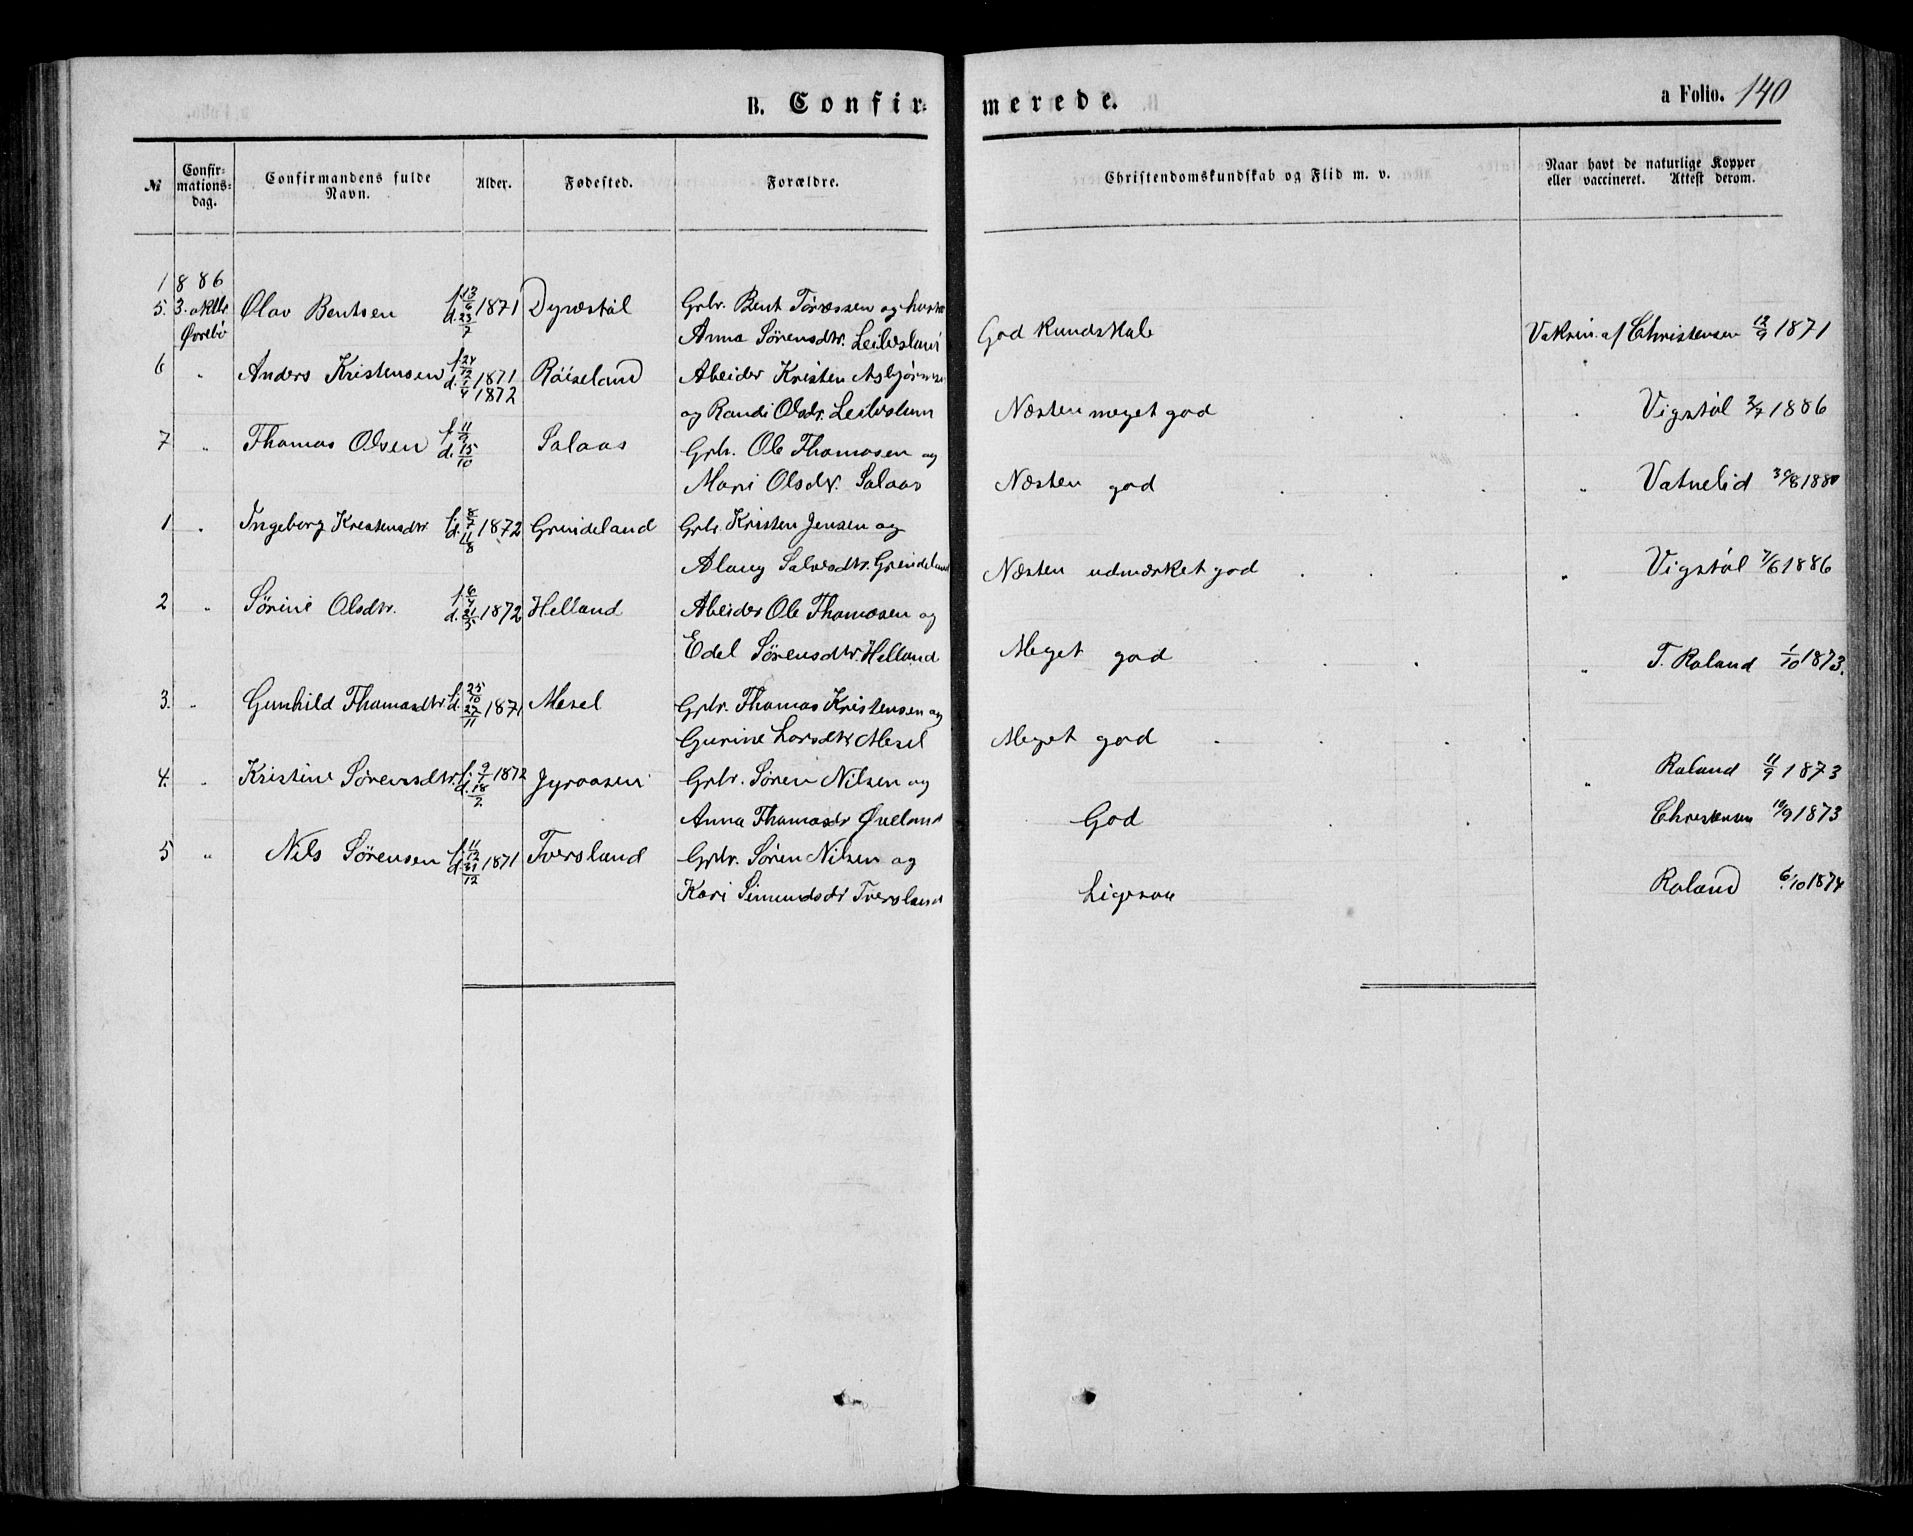 B. Confir-
merede.
a Folio. 140
№
Confir-
mations-
dag.
Confirmandens fulde
Navn.
Alder.
Fødested.
Forældre.
Christendomskundskab og Flid m. v.
Naar havt de naturlige Kopper
eller vaccineret. Attest derom.
1886
5. 3. oktbr. Olav Bentsen f. 13/6 1871 Dyrestøl Grbr. Bent Tørressen og hustru
Øvrebø d. 23/7 Anna Sørensdtr. God Kundskab Vakcin. af Christensen 12/9 1871
6 " Anders Kristensen f. 24/12 1871 Røiseland Abeider Kristen Asbjørnsen
d. 1/4 1872 og Randi Olsdr. Næsten meget god . . " Vigstøl 2/7 1886
7 " Thomas Olsen f. 11/9 Salaas Grbr. Ole Thomasen og
d. 15/10 Mari Olsdtr. Salaas Næsten god . . " Vatnelid 30/8 1880
1 " Ingeborg Kristensdtr f. 8/7 1872 Grindeland Grbr Kristen Jensen og
d. 11/8 Salvesdtr. Grindeland Næsten udmærket god . . " Vigstøl 7/6 1886
2 " Sørine Olsdtr. f. 6/4 1872 Helland Abeider Ole Thomasen og
d. 21/5 Edel Sørensdtr. Helland Meget god . . . " T. Roland 1/10 1873.
3. " Gunhild Thomasdtr f. 25/10 1871 Mesel Grbr. Thomas Kristensen og
d. 27/11 Gurine Larsdtr Mesel Meget god . . . .
4. " Kristine Sørensdtr. f. 9/1 1872 Gyraasen Grbr. Søren Nilsen og " Roland 11/9 1873
d. 18/2 Anna Thomasdr Øveland God . . Christensen 10/9 1873
5 " Nils Sørensen f. 11/12 1871 Tversland Grbr. Søren Nilsen og
d. 31/12 Kari Simundsdr Tversland Ligesaa Roland 6/10 1874